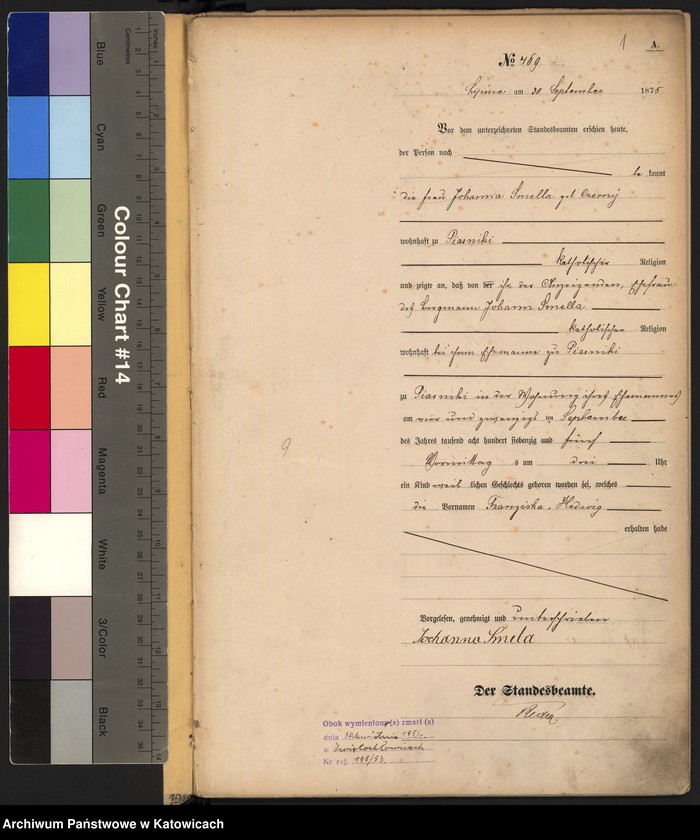 1 A.
№ 469
Lipine am 30 September 1875
Vor dem unterzeichneten Standesbeamten erschien heute,
der Person nach
be kannt
die Frau Johanna Smella geb. Czerny
wohnhaft zu Piasniki
katholischer Religion
und zeigte an, daß von der ihr, der Anzeigenden, Ehefrau
des Bergmann Johann Smella
katholischer Religion
wohnhaft bei ihrem Ehemanne zu Piasniki
zu Piasniki in der Wohnung ihres Ehemannes
am vier und zwanzigsten September
des Jahres tausend acht hundert siebenzig und fünf
Vormittags um drei Uhr
ein Kind weiblichen Geschlechts geboren worden sei, welches
die Vornamen Franziska, Hedwig
erhalten habe
9
Vorgelesen, genehmigt und unterschrieben
Johanna Smela
Der Standesbeamte.
Obok wymieniony(a) zmarł(a)
dnia 195
w Świętochłowicach
Nr rej. 195/53
Colour Chart #14
Blue
Cyan
Green
Yellow
Red
Magenta
White
3/Color
Black
Centimetres
Inches
Archiwum Państwowe w Katowicach